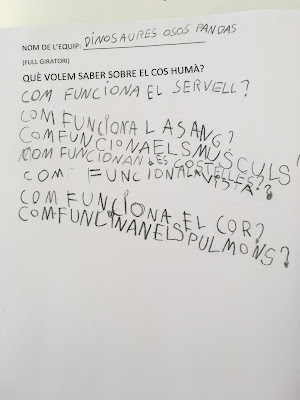 NOM DE L'EQUIP: DINOSAURES OSOS PANDAS
(FULL GIRATORI)
QUÈ VOLEM SABER SOBRE EL COS HUMÀ?
COM FUNCIONA EL SERVELL?
COM FUNCIONA LA SANG?
COM FUNCIONA ELS MUSCULS
COM FUNCIONAN LES COSTELLES?
COM FUNCIONA LA VISTA?
COM FUNCIONA EL COR?
COM FUNCINAN ELS PULMONS?